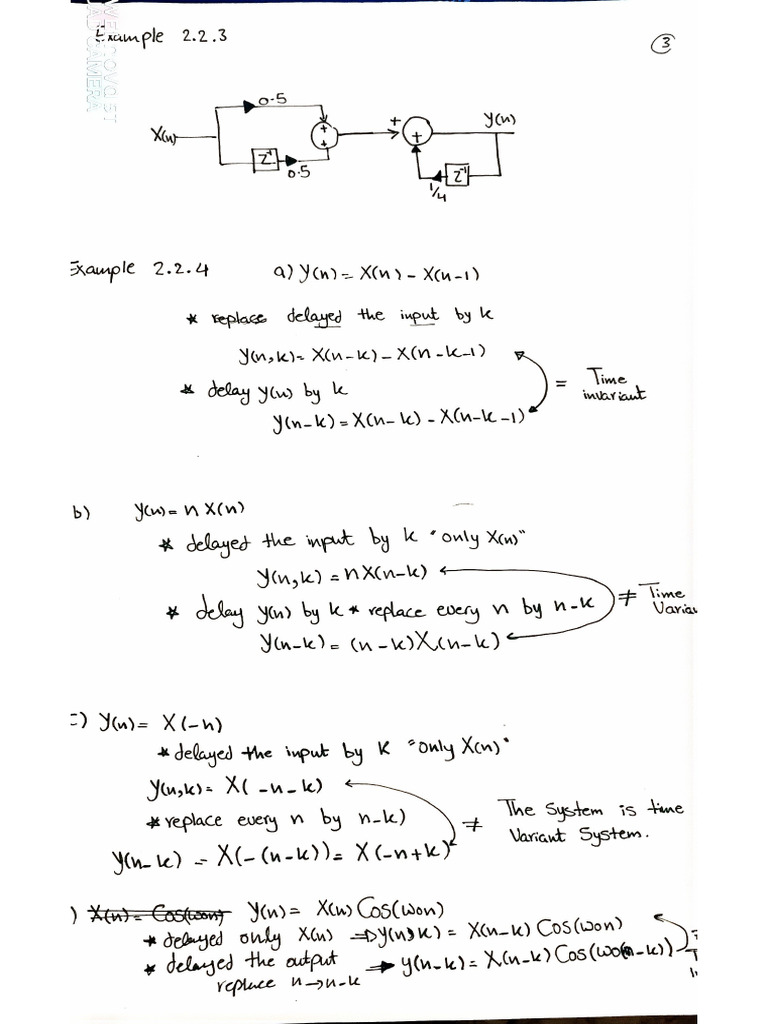 Example 2.2.3
3
0.5
X(n)
Z⁻¹
0.5
+
+
+
+
y(n)
Z⁻¹
1/4
Example 2.2.4 a) y(n) = X(n) - X(n-1)
* replace delayed the input by k
y(n,k) = X(n-k) - X(n-k-1)
* delay y(n) by k
y(n-k) = X(n-k) - X(n-k-1)
= Time
invariant
b) y(n) = n X(n)
* delayed the input by k "only X(n)"
y(n,k) = n X(n-k)
* delay y(n) by k * replace every n by n-k
y(n-k) = (n-k) X(n-k)
≠ Time
Varia
c) y(n) = X(-n)
* delayed the input by k "only X(n)"
y(n,k) = X(-n-k)
* replace every n by n-k)
y(n-k) = X(-(n-k)) = X(-n+k)
≠ The System is time
Variant System.
) X(n) = Cos(won) y(n) = X(n) Cos(won)
* delayed only X(n) ⇒ y(n,k) = X(n-k) Cos(won)
* delayed the output
replace n→n-k
→ y(n-k) = X(n-k) Cos(wo(n-k))